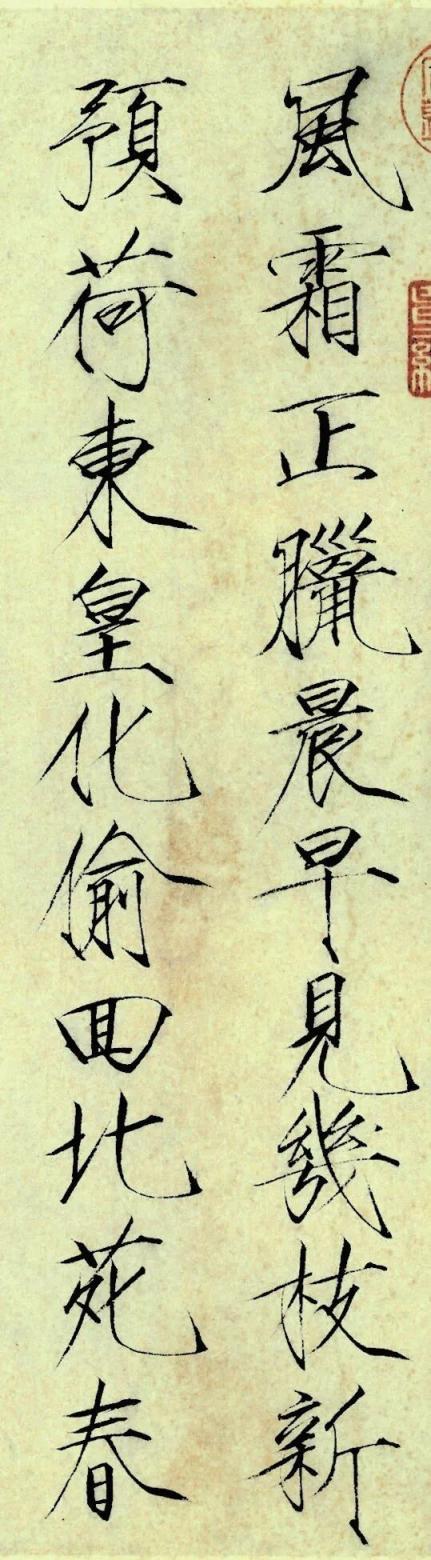 風霜正臘晨早見幾枝新
預荷東皇化偷回北苑春